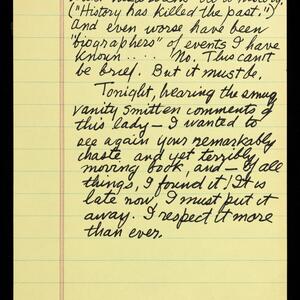 ("History has killed the past.")
And even worse have been
"biographers" of events I have
known.... No. This can't
be brief. But it must be.
Tonight, hearing the smug
vanity smitten comments of
this lady — I wanted to
see again your remarkably
chaste and yet terribly
moving book, and — of all
things, I found it! It is
late now, I must put it
away. I respect it more
than ever.